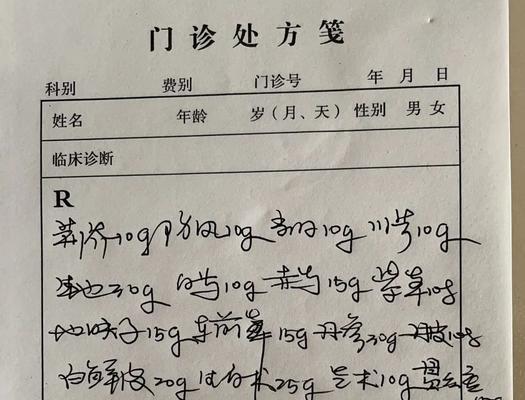 门诊处方笺
科别 费别 门诊号 年 月 日
姓名 年龄 岁(月、天) 性别 男 女
临床诊断
R
荆芥10g 防风10g 10g 川芎10g
生地30g 白芍10g 赤芍15g 紫草10g
地肤子15g 车前草15g 丹参30g 丹皮10g
白鲜皮20g 生白术25g 10g